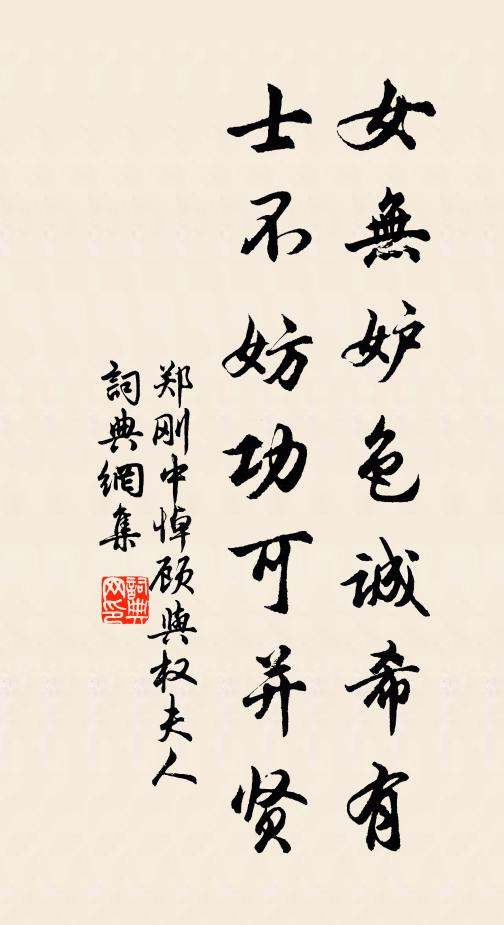 女無妒色誠希有
士不妨功可并贤
郑刚中悼顾與权夫人
詞典網集
詞典網印